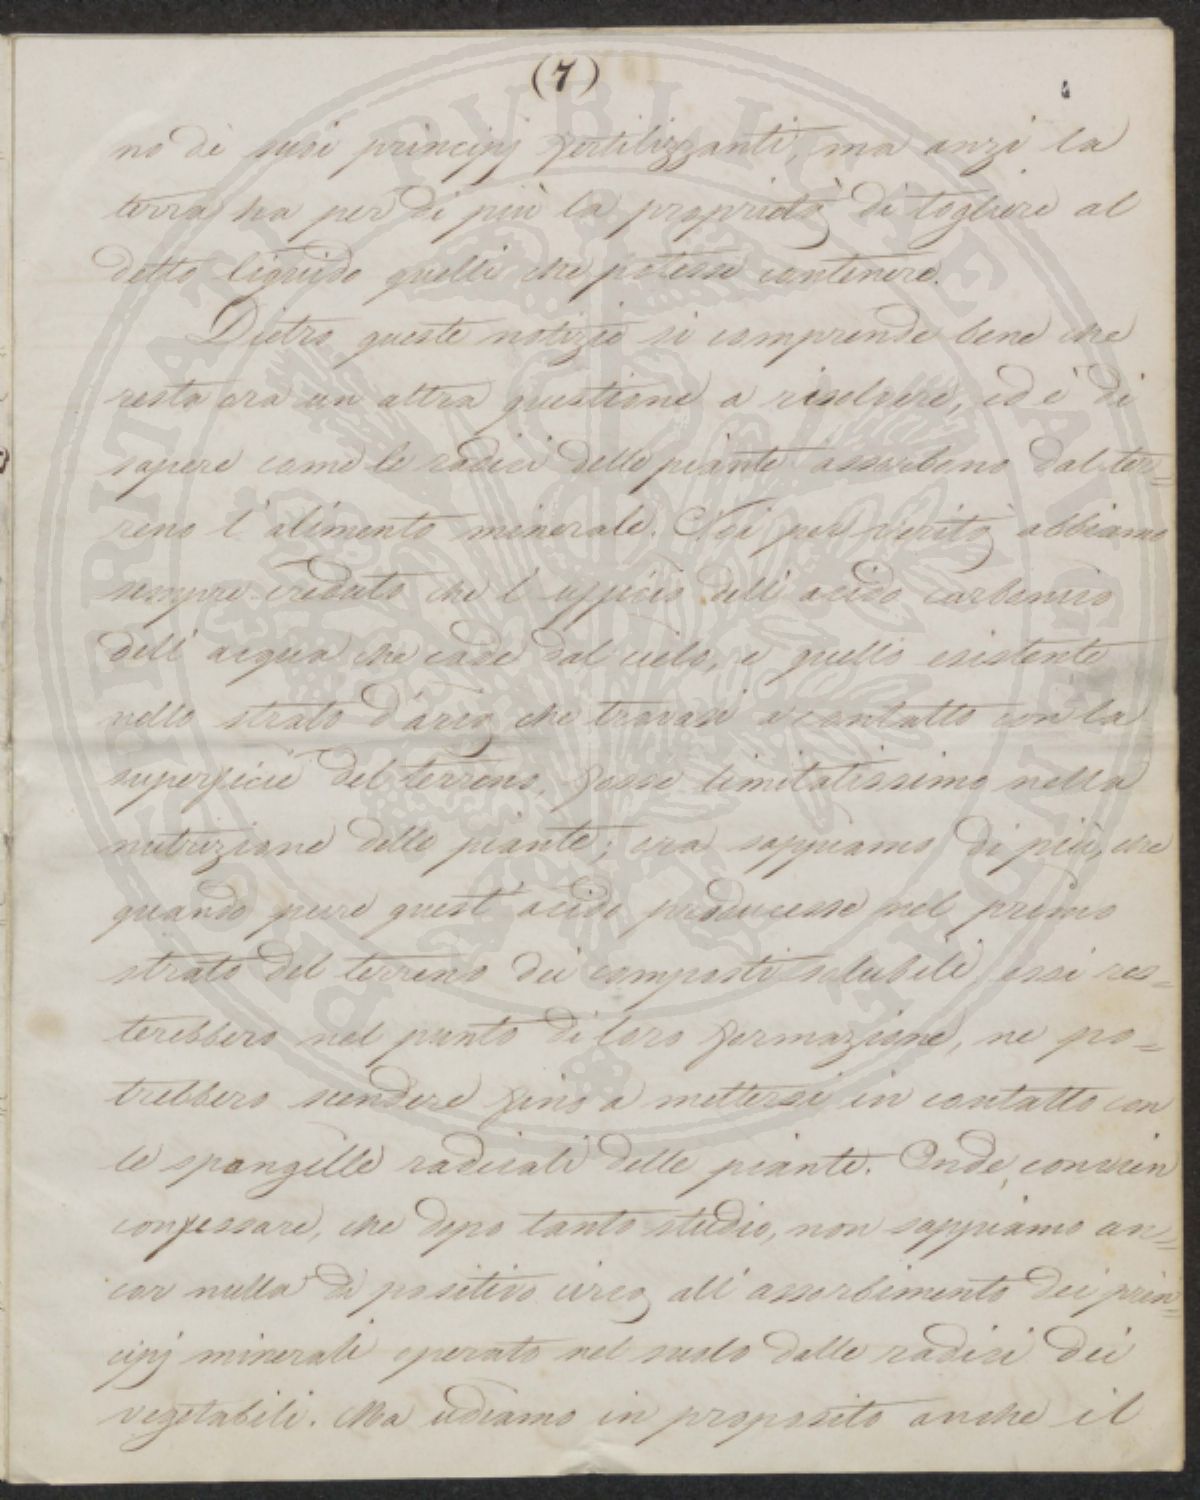 (7)
no dè suoi principj fertilizzanti, ma anzi la
terra ha per di più la proprietà di togliere al
detto liquido quelli che potesse contenere.
Dietro queste notizie si comprende bene che
resta ora un altra questione a risolvere, ed è di
sapere come le radici delle piante assorbono dal ter=
reno l'alimento minerale. Noi per verità abbiamo
sempre creduto che l'ufficio dell'acido carbonico
dell'acqua che cade dal cielo, e quello esistente
nello strato d'aria che trovasi a contatto con la
superficie del terreno, fosse limitatissimo nella
nutrizione delle piante; ora sappiamo di più, che
quando pure quest'acido producesse nel primo
strato del terreno dei composti solubili, essi res=
terebbero nel punto di loro formazione, ne po=
trebbero scendere fino a mettersi in contatto con
le spongille radicali delle piante. Onde, convien
confessare, che dopo tanto studio, non sappiamo an=
cor nulla di positivo circa all'assorbimento dei prin=
cipj minerali operato nel suolo dalle radici dei
vegetabili. Ma udiamo in proposito anche il